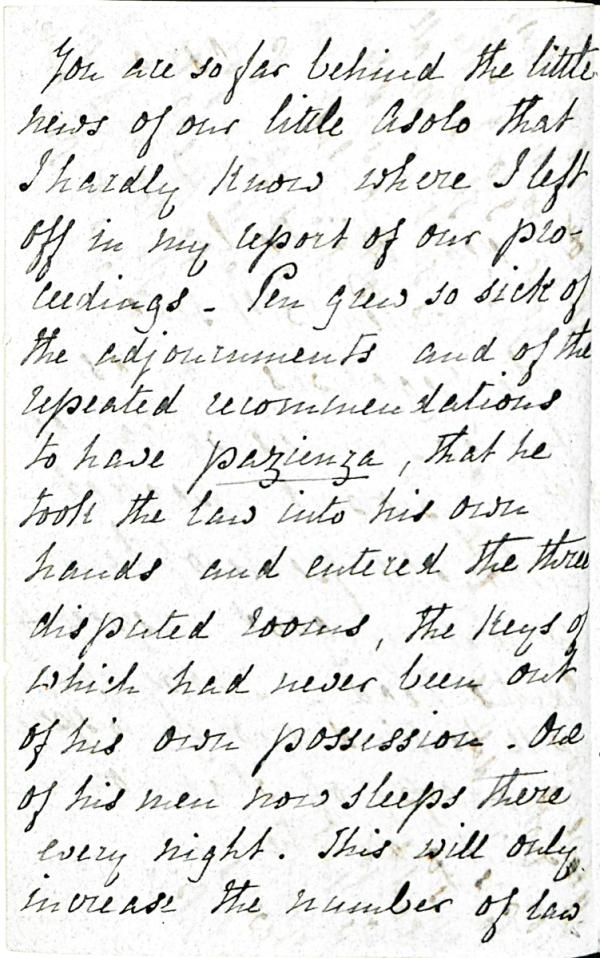 You are so far behind the little
news of our little Asolo that
I hardly know where I left
off in my report of our pro-
ceedings - Pen grew so sick of
the adjournments and of the
repeated recommendations
to have pazienza, that he
took the law into his own
hands and entered the three
disputed rooms, the keys of
which had never been out
of his own possession. One
of his men now sleeps there
every night. This will only
increase the number of law